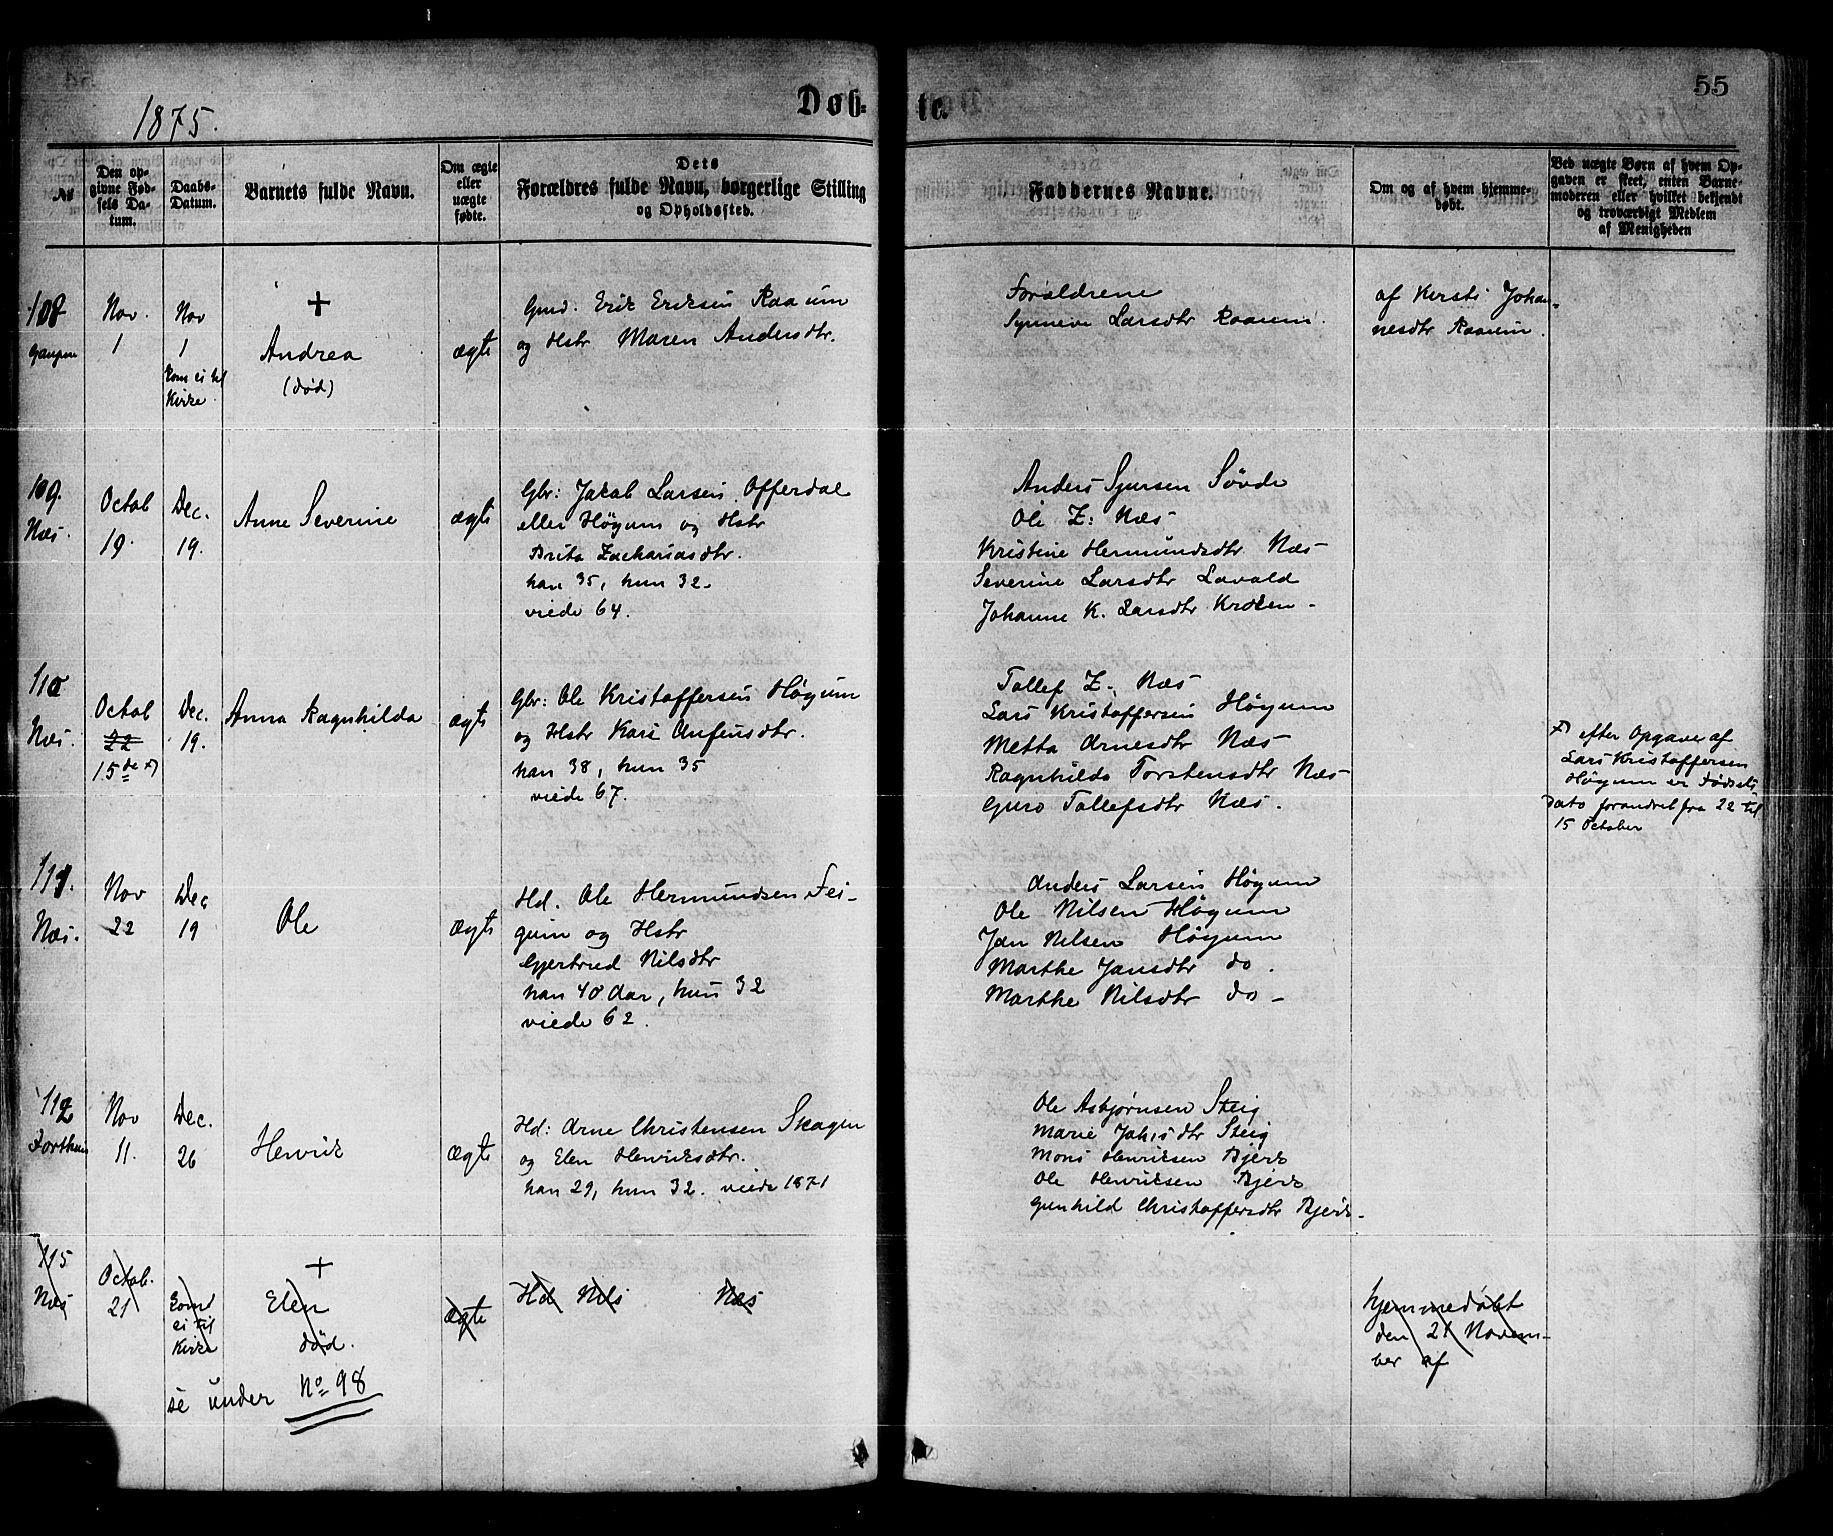 1875.
Døb-
te.
55
№
Den op-
givne Fød-
sels Da-
tum.
Daabs-
Datum.
Barnets fulde Navn.
Om ægte
eller
uægte
fødte.
Dets
Forældres fulde Navn, borgerlige Stilling
og Opholdssted.
Faddernes Navne.
Om og af hvem hjemme-
døbt.
Ved uægte Børn af hvem Op-
gaven er skeet, enten Barne-
moderen eller hvilket bekjendt
og troværdigt Medlem
af Menigheden
108
Gaupne
Nov.
1
Nov
1
kom ei til
Kirke
+
Andrea
(død)
ægte
Gmd: Erik Eriksen Raaum
og Hstr Maren Andersdtr.
Forældrene
Synneve Larsdtr Raaum.
af Kersti Johan-
nesdtr Raaum.
109.
Næs.
Octob
19.
Dec.
19.
Anne Severine
ægte
Gbr: Jakob Larsen Offerdal
eller Høyum og Hstr
Brita Zachariasdtr.
han 35, hun 32.
viede 64.
Anders Sjursen Søvde
Ole Z: Næs
Kristine Hermundsdtr Næs
Severine Larsdtr Lavold
Johanne K. Larsdtr Kroken.
110
Næs.
Octob
22
15de x)
Dec.
19.
Anna Ragnhilda
ægte
Gbr: Ole Kristoffersen Høyum
og Hstr Kari Anfinsdtr.
han 38, hun 35
viede 67.
Tollef Z. Næs
Lars Kristoffersen Høyum
Metta Arnesdtr Næs
Ragnhilda Torstensdtr Næs
Guro Tollefsdtr Næs.
x) efter Opgave af
Lars Kristoffersen
Høyum er Fødsels
dato forandret fra 22 til
15 October
111.
Næs.
Nov
22
Dec
19
Ole
ægte
Hd. Ole Hermundsen Fei-
gum og Hstr
Gjertrud Nilsdtr
han 40 Aar, hun 32
viede 62.
Anders Larsen Høyum
Ole Nilsen Høyum
Jan Nilsen Høyum
Marthe Jansdtr do.
Marthe Nilsdtr do
112
Forthun
Nov
11.
Dec.
26
Henrik
ægte
Hd: Arne Christensen Skagen
og Elen Henriksdtr.
han 29, hun 32. viede 1871
Ole Asbjørnsen Steig
Marie Johsdtr Steig
Mons Henriksen Bjerk
Ole Henriksen Bjerk
Gunhild Christoffersdtr Bjerk
115
Næs
Octob.
21
komt
ei til
Kirke
+
Elen
død.
ægte
Hd Nils Næs
hjemmedøbt
den 21 Novem-
ber af
se under No 98